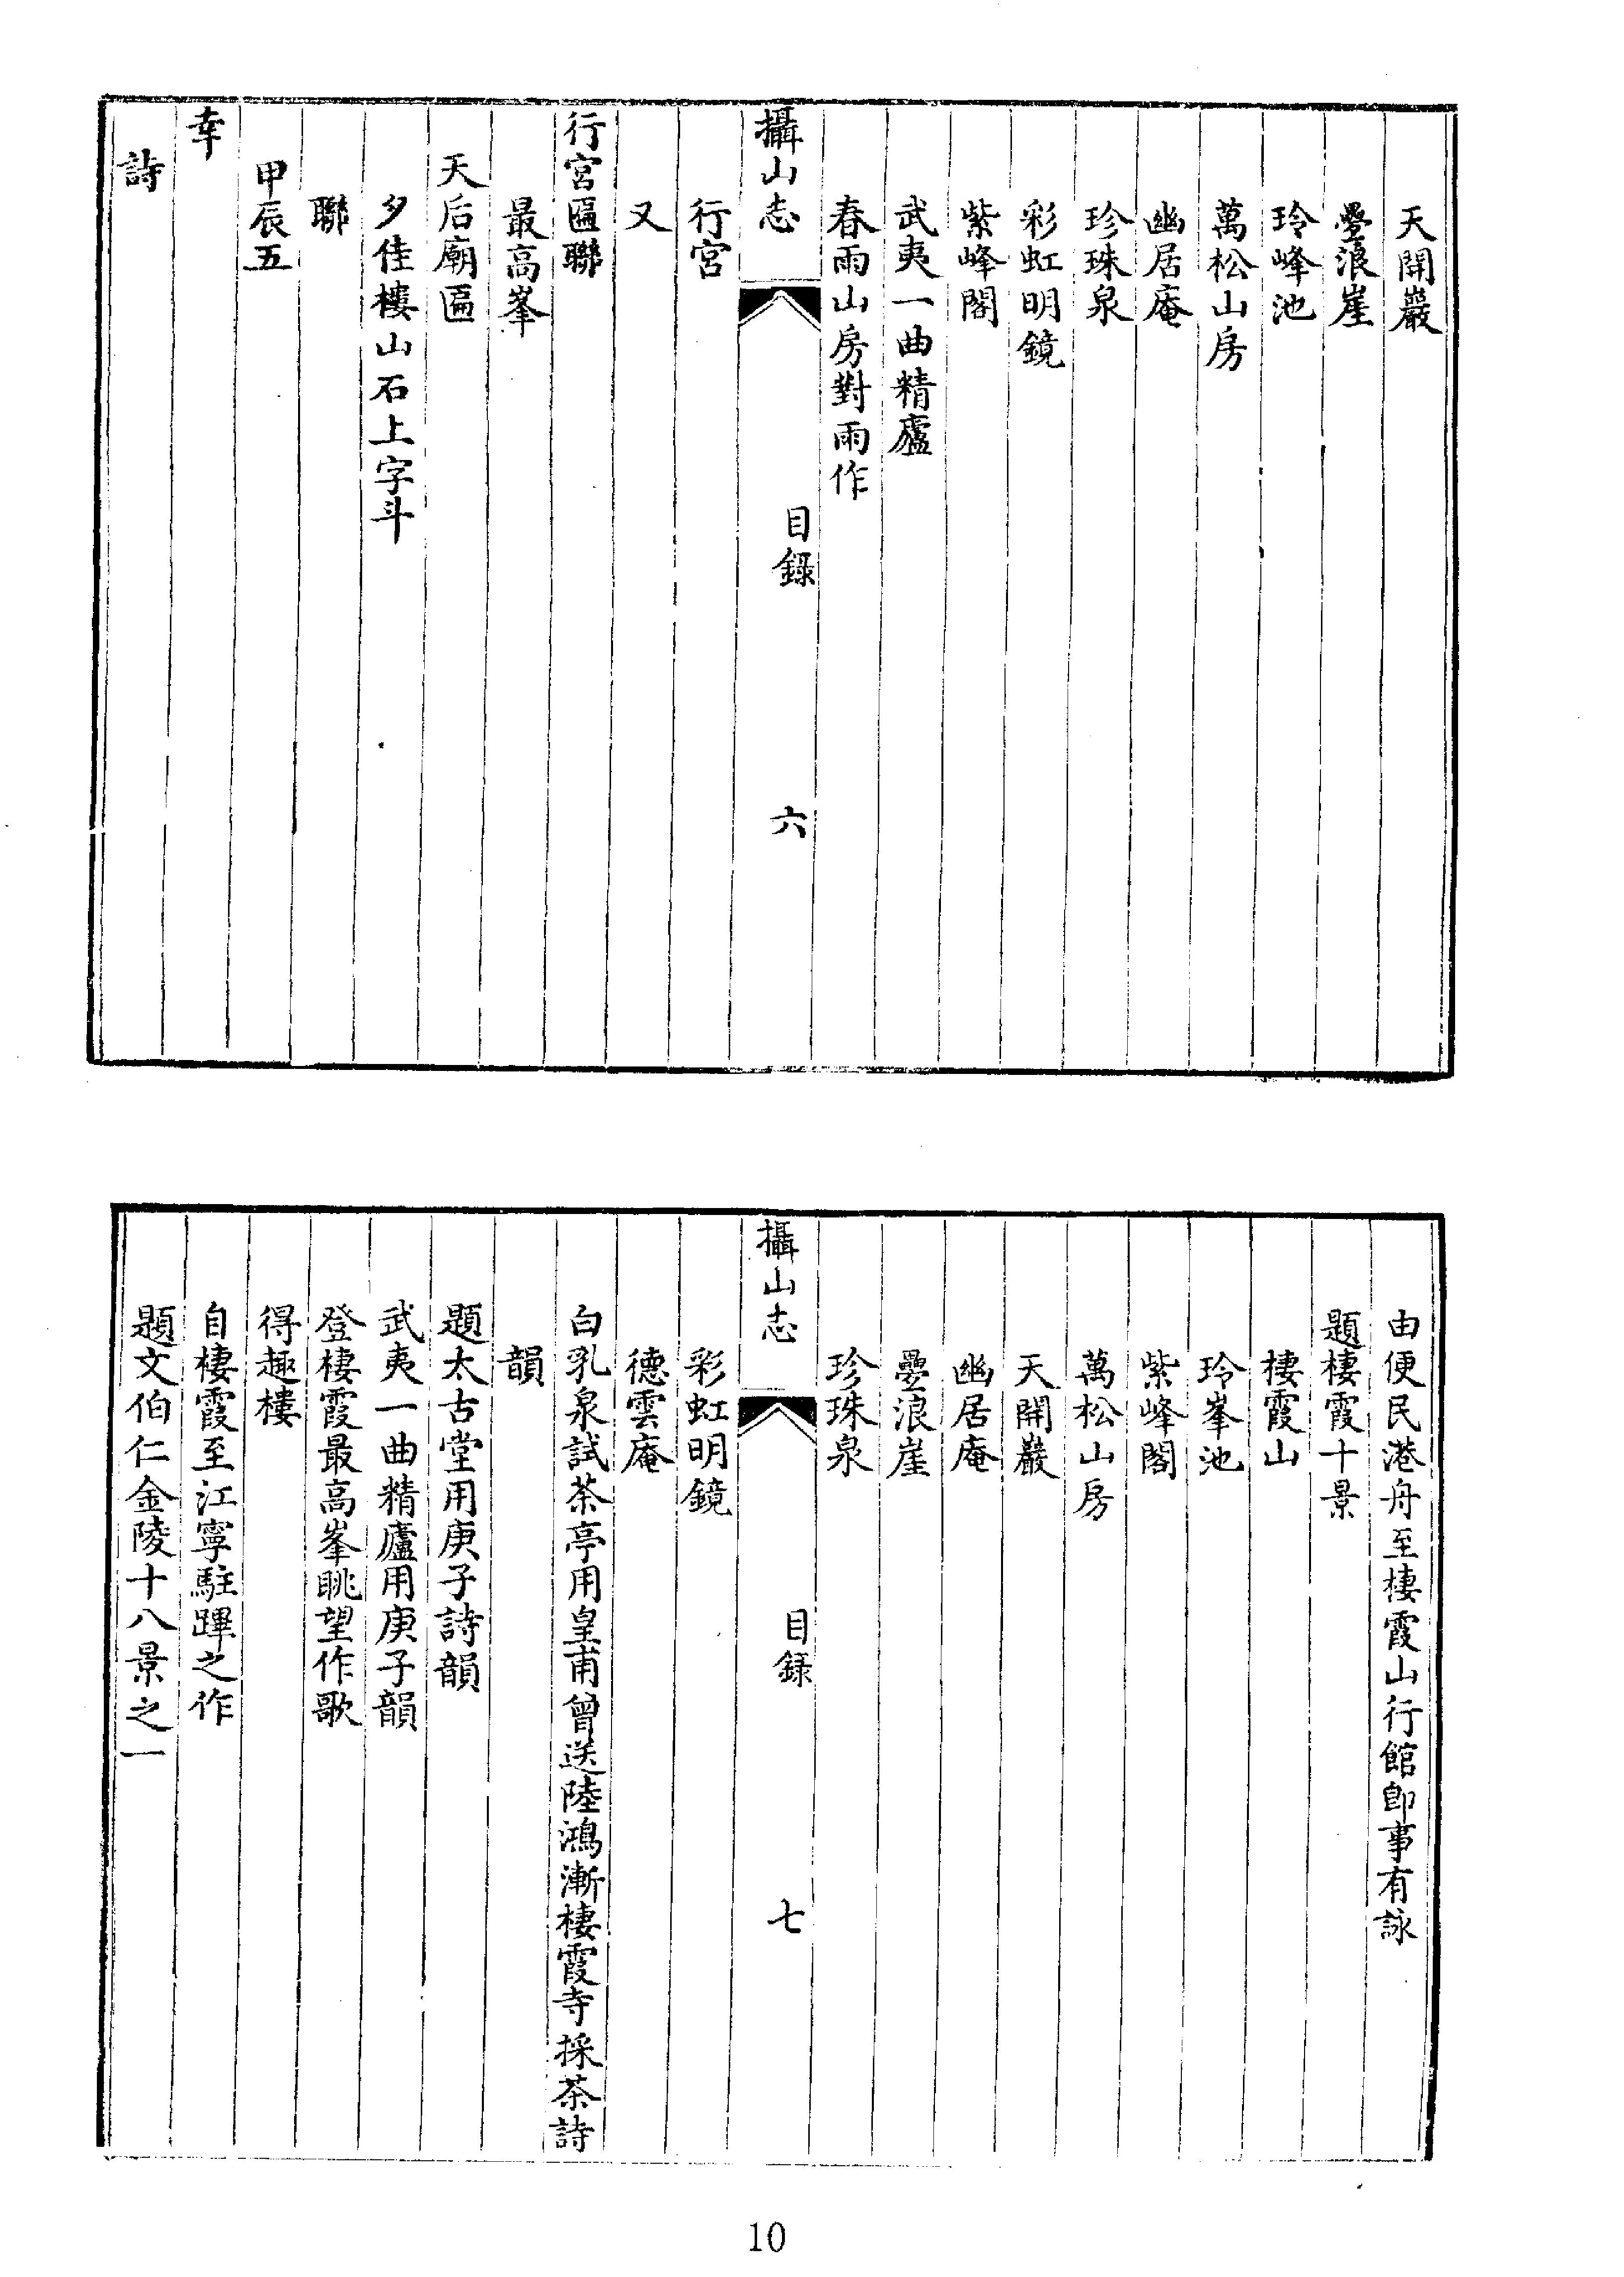 天開巖
疊浪崖
玲峰池
萬松山房
幽居庵
珍珠泉
彩虹明鏡
紫峰閣
武夷一曲精廬
春雨山房對雨作
攝山志　目錄　六
行宮
又
行宮匾聯
最高峯
天后廟匾
夕佳樓山石上字斗
聯
甲辰五
幸
詩
由便民港舟至棲霞山行館即事有詠
題棲霞十景
棲霞山
玲峯池
紫峰閣
萬松山房
天開巖
幽居庵
疊浪崖
珍珠泉
攝山志　目錄　七
彩虹明鏡
德雲庵
白乳泉試茶亭用皇甫曾送陸鴻漸棲霞寺採茶詩
韻
題太古堂用庚子詩韻
武夷一曲精廬用庚子韻
登棲霞最高峯眺望作歌
得趣樓
自棲霞至江寧駐蹕之作
題文伯仁金陵十八景之一
10